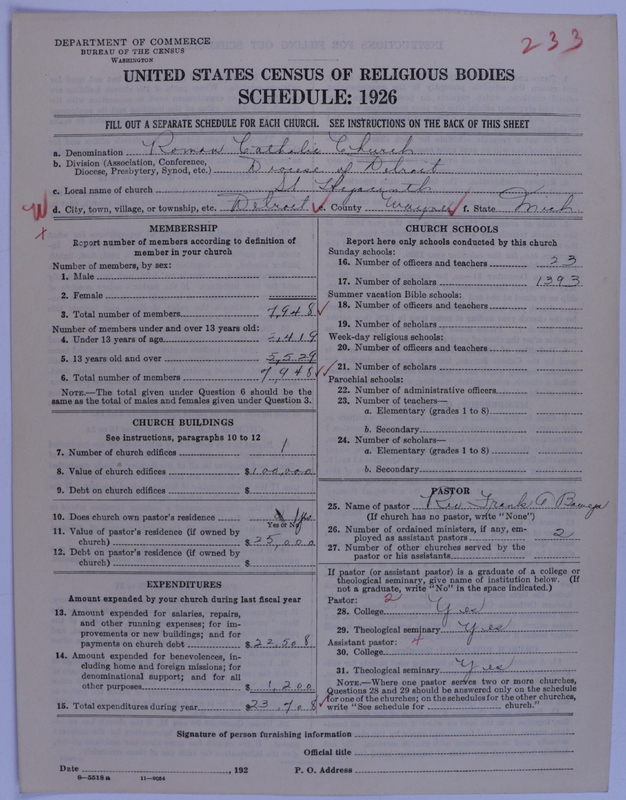 233
DEPARTMENT OF COMMERCE
BUREAU OF THE CENSUS
WASHINGTON
UNITED STATES CENSUS OF RELIGIOUS BODIES
SCHEDULE: 1926
FILL OUT A SEPARATE SCHEDULE FOR EACH CHURCH. SEE INSTRUCTIONS ON THE BACK OF THIS SHEET
a. Denomination Roman Catholic Church
b. Division (Association, Conference, Diocese, Presbytery, Synod, etc.) Diocese of Detroit
c. Local name of church St Hyacinth
d. City, town, village, or township, etc. Detroit e. County Wayne f. State Mich.
MEMBERSHIP
Report number of members according to definition of
member in your church
Number of members, by sex:
1. Male
2. Female
3. Total number of members 7948
Number of members under and over 13 years old:
4. Under 13 years of age 2,419
5. 13 years old and over 5,529
6. Total number of members 7948
NOTE.—The total given under Question 6 should be the
same as the total of males and females given under Question 3.
CHURCH BUILDINGS
See instructions, paragraphs 10 to 12
7. Number of church edifices 1
8. Value of church edifices $100,000
9. Debt on church edifices $
10. Does church own pastor's residence Yes
Yes or No
11. Value of pastor's residence (if owned by
church) $25,000
12. Debt on pastor's residence (if owned by
church) $
EXPENDITURES
Amount expended by your church during last fiscal year
13. Amount expended for salaries, repairs,
and other running expenses; for im-
provements or new buildings; and for
payments on church debt $22,508
14. Amount expended for benevolences, in-
cluding home and foreign missions; for
denominational support; and for all
other purposes $1,200
15. Total expenditures during year $23,708
CHURCH SCHOOLS
Report here only schools conducted by this church
Sunday schools:
16. Number of officers and teachers 23
17. Number of scholars 1393
Summer vacation Bible schools:
18. Number of officers and teachers
19. Number of scholars
Week-day religious schools:
20. Number of officers and teachers
21. Number of scholars
Parochial schools:
22. Number of administrative officers
23. Number of teachers—
a. Elementary (grades 1 to 8)
b. Secondary
24. Number of scholars—
a. Elementary (grades 1 to 8)
b. Secondary
PASTOR
25. Name of pastor Rev Frank A
(If church has no pastor, write "None")
26. Number of ordained ministers, if any, em-
ployed as assistant pastors 2
27. Number of other churches served by the
pastor or his assistants
If pastor (or assistant pastor) is a graduate of a college or
theological seminary, give name of institution below. (If
not a graduate, write "No" in the space indicated.)
Pastor: 2
28. College Yes
29. Theological seminary Yes
Assistant pastor: 4
30. College
31. Theological seminary Yes
NOTE.—Where one pastor serves two or more churches,
Questions 28 and 29 should be answered only on the schedule
for one of the churches; on the schedules for the other churches,
write "See schedule for church."
Signature of person furnishing information
Official title
Date , 192 P. O. Address
8—5518a 11—9034